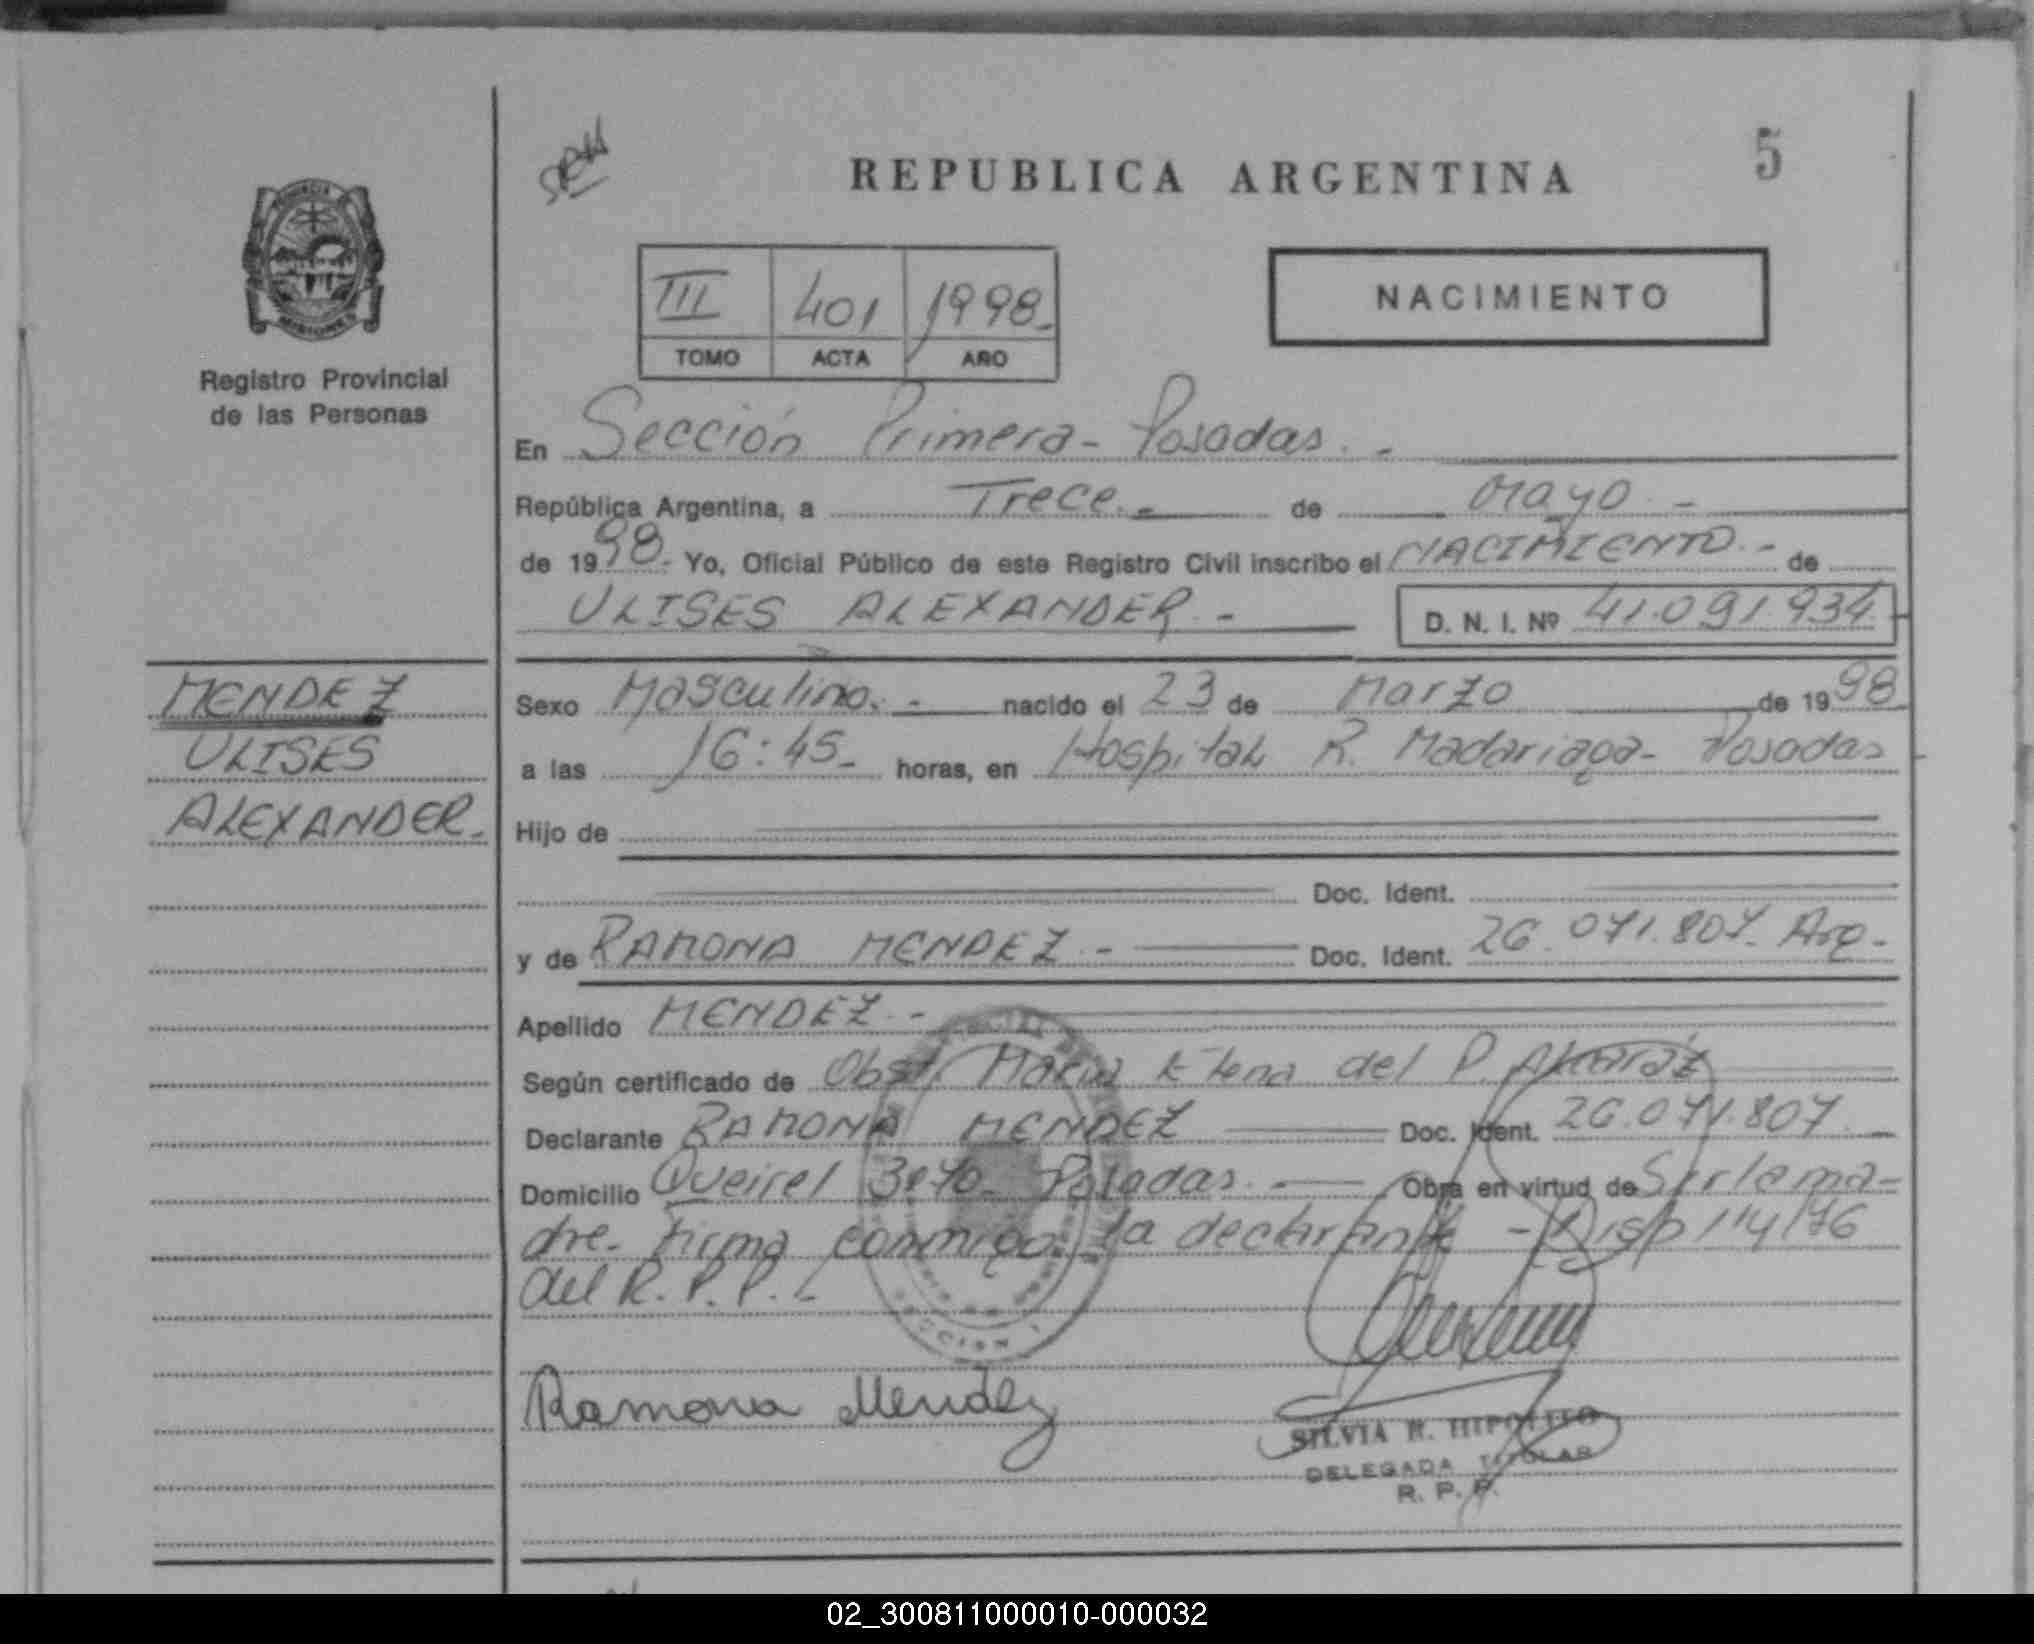 REPUBLICA ARGENTINA
5
PROVINCIA
MISIONES
Registro Provincial
de las Personas
III 401 1998.
TOMO ACTA AÑO
NACIMIENTO
En Sección Primera- Posadas. -
República Argentina, a Trece. - de Mayo -
de 1998. Yo, Oficial Público de este Registro Civil inscribo el NACIMIENTO. - de
ULISES ALEXANDER. - D. N. I. Nº 41.091.934
MENDEZ
ULISES
ALEXANDER.
Sexo Masculino. - nacido el 23 de Marzo de 1998
a las 16:45- horas, en Hospital R. Madariaga- Posadas
Hijo de
Doc. Ident.
y de RAMONA MENDEZ. - Doc. Ident. 26.071.807. Arg.
Apellido MENDEZ. -
Según certificado de Obst. Maria Elena del P. Alcaráz
Declarante RAMONA MENDEZ Doc. Ident. 26.071.807
Domicilio Queirel Posadas. - Obra en virtud de Ser la ma-
dre. Firma conmigo la declarante - Disp 114/76
del R. P. P. -
Ramona Mendez
SILVIA R. HIPOLITO
DELEGADA TITULAR
R. P. P.
02_300811000010-000032